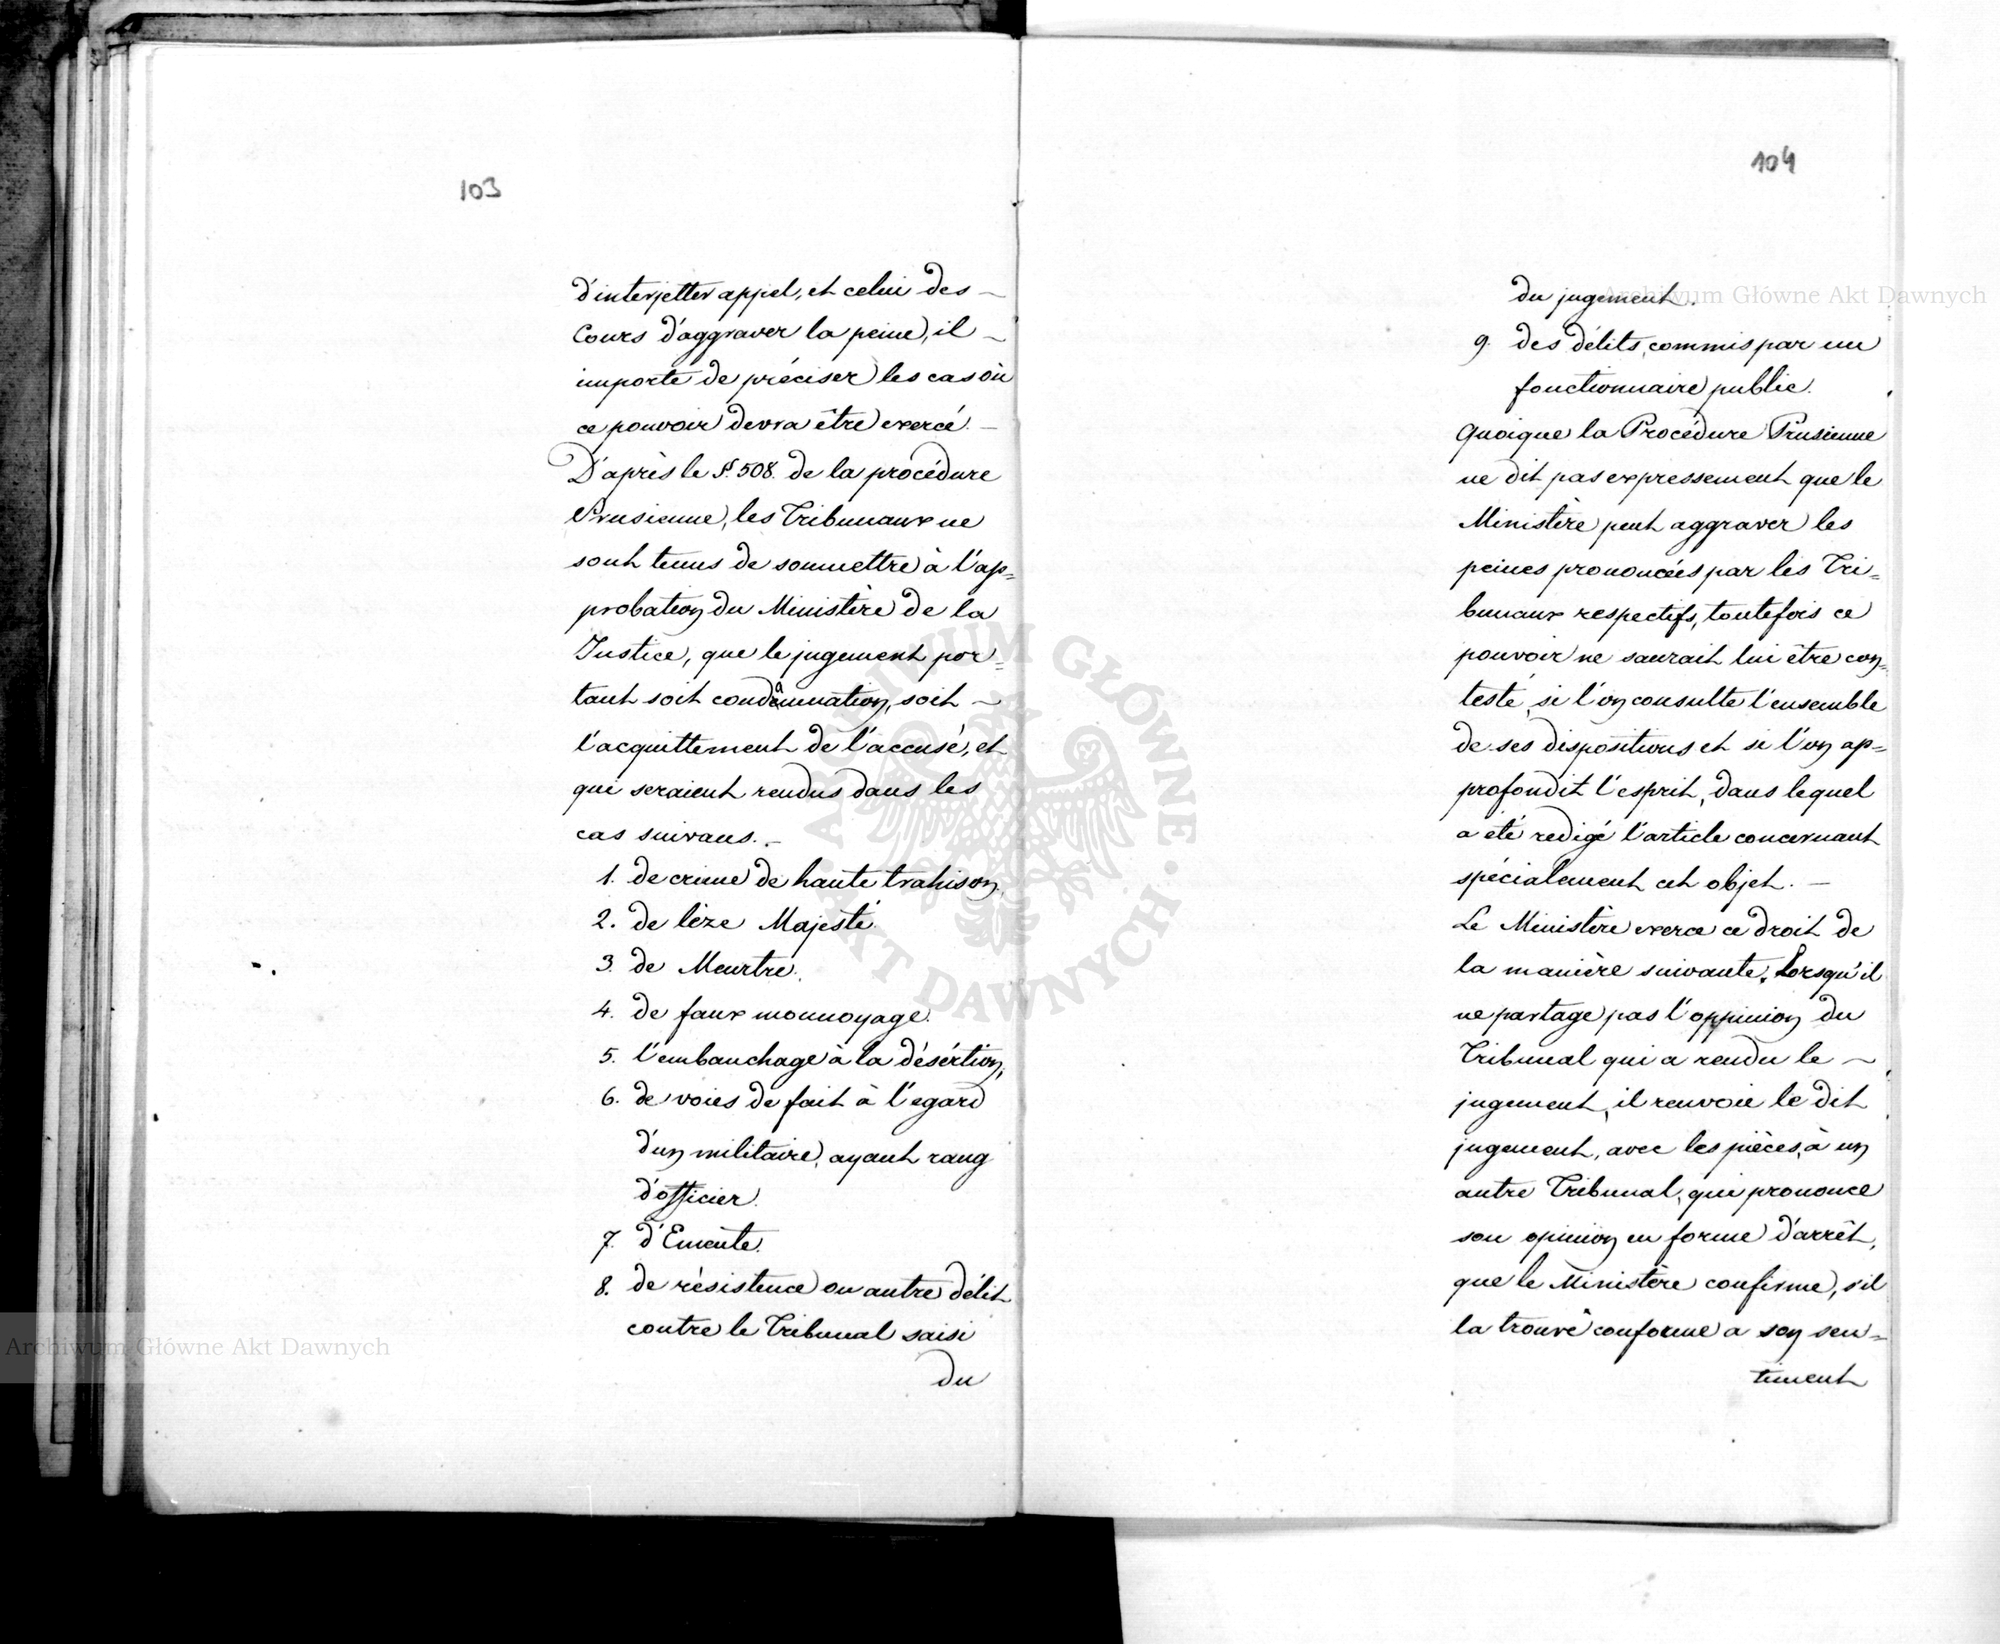 103
d'interjetter appel, et celui des –
Cours d'aggraver la peine, il –
importe de préciser les cas où
ce pouvoir devra être exercé. –
D'après le §. 508. de la procédure
Prusienne, les Tribunaux ne
sont tenus de soumettre à l'ap=
probation du Ministère de la
Justice, que le jugement por=
tant soit condamnation, soit –
l'acquittement de l'accusé, et
qui seraient rendus dans les
cas suivans. –
1. de crime de haute trahison,
2. de lèze Majesté.
3. de Meurtre.
4. de faux monnoyage.
5. l'embauchage à la désértion,
6. de voies de fait à l'egard
d'un militaire, ayant rang
d'officier.
7. d'Emeûte.
8. de résistence ou autre délit
contre le Tribunal saisi
du
104
du jugement.
9. des délits, commis par un
fonctionnaire public.
Quoique la Procédure Prusienne
ne dit pas expressement que le
Ministère peut aggraver les
peines prononcées par les Tri=
bunaux respectifs, toutefois ce
pouvoir ne saurait lui être con=
testé, si l'on consulte l'ensemble
de ses dispositions et si l'on ap=
profondit l'esprit, dans lequel
a été redigé l'article concernant
spécialement cet objet. –
Le Ministère exerce ce droit de
la manière suivante. Lorsqu'il
ne partage pas l'oppinion du
Tribunal qui a rendu le –
jugement, il renvoie le dit
jugement, avec les pièces, à un
autre Tribunal, qui prononce
son opinion en forme d'arrêt,
que le Ministère confirme, s'il
la trouve conforme a son sen=
timent
Archiwum Główne Akt Dawnych
Archiwum Główne Akt Dawnych
ARCHIWUM GŁÓWNE · AKT DAWNYCH ·